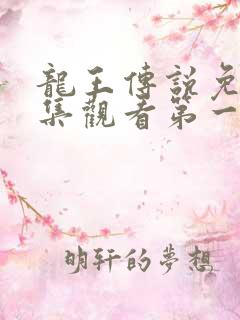 龍王傳說免
集觀看第一
明軒的夢想